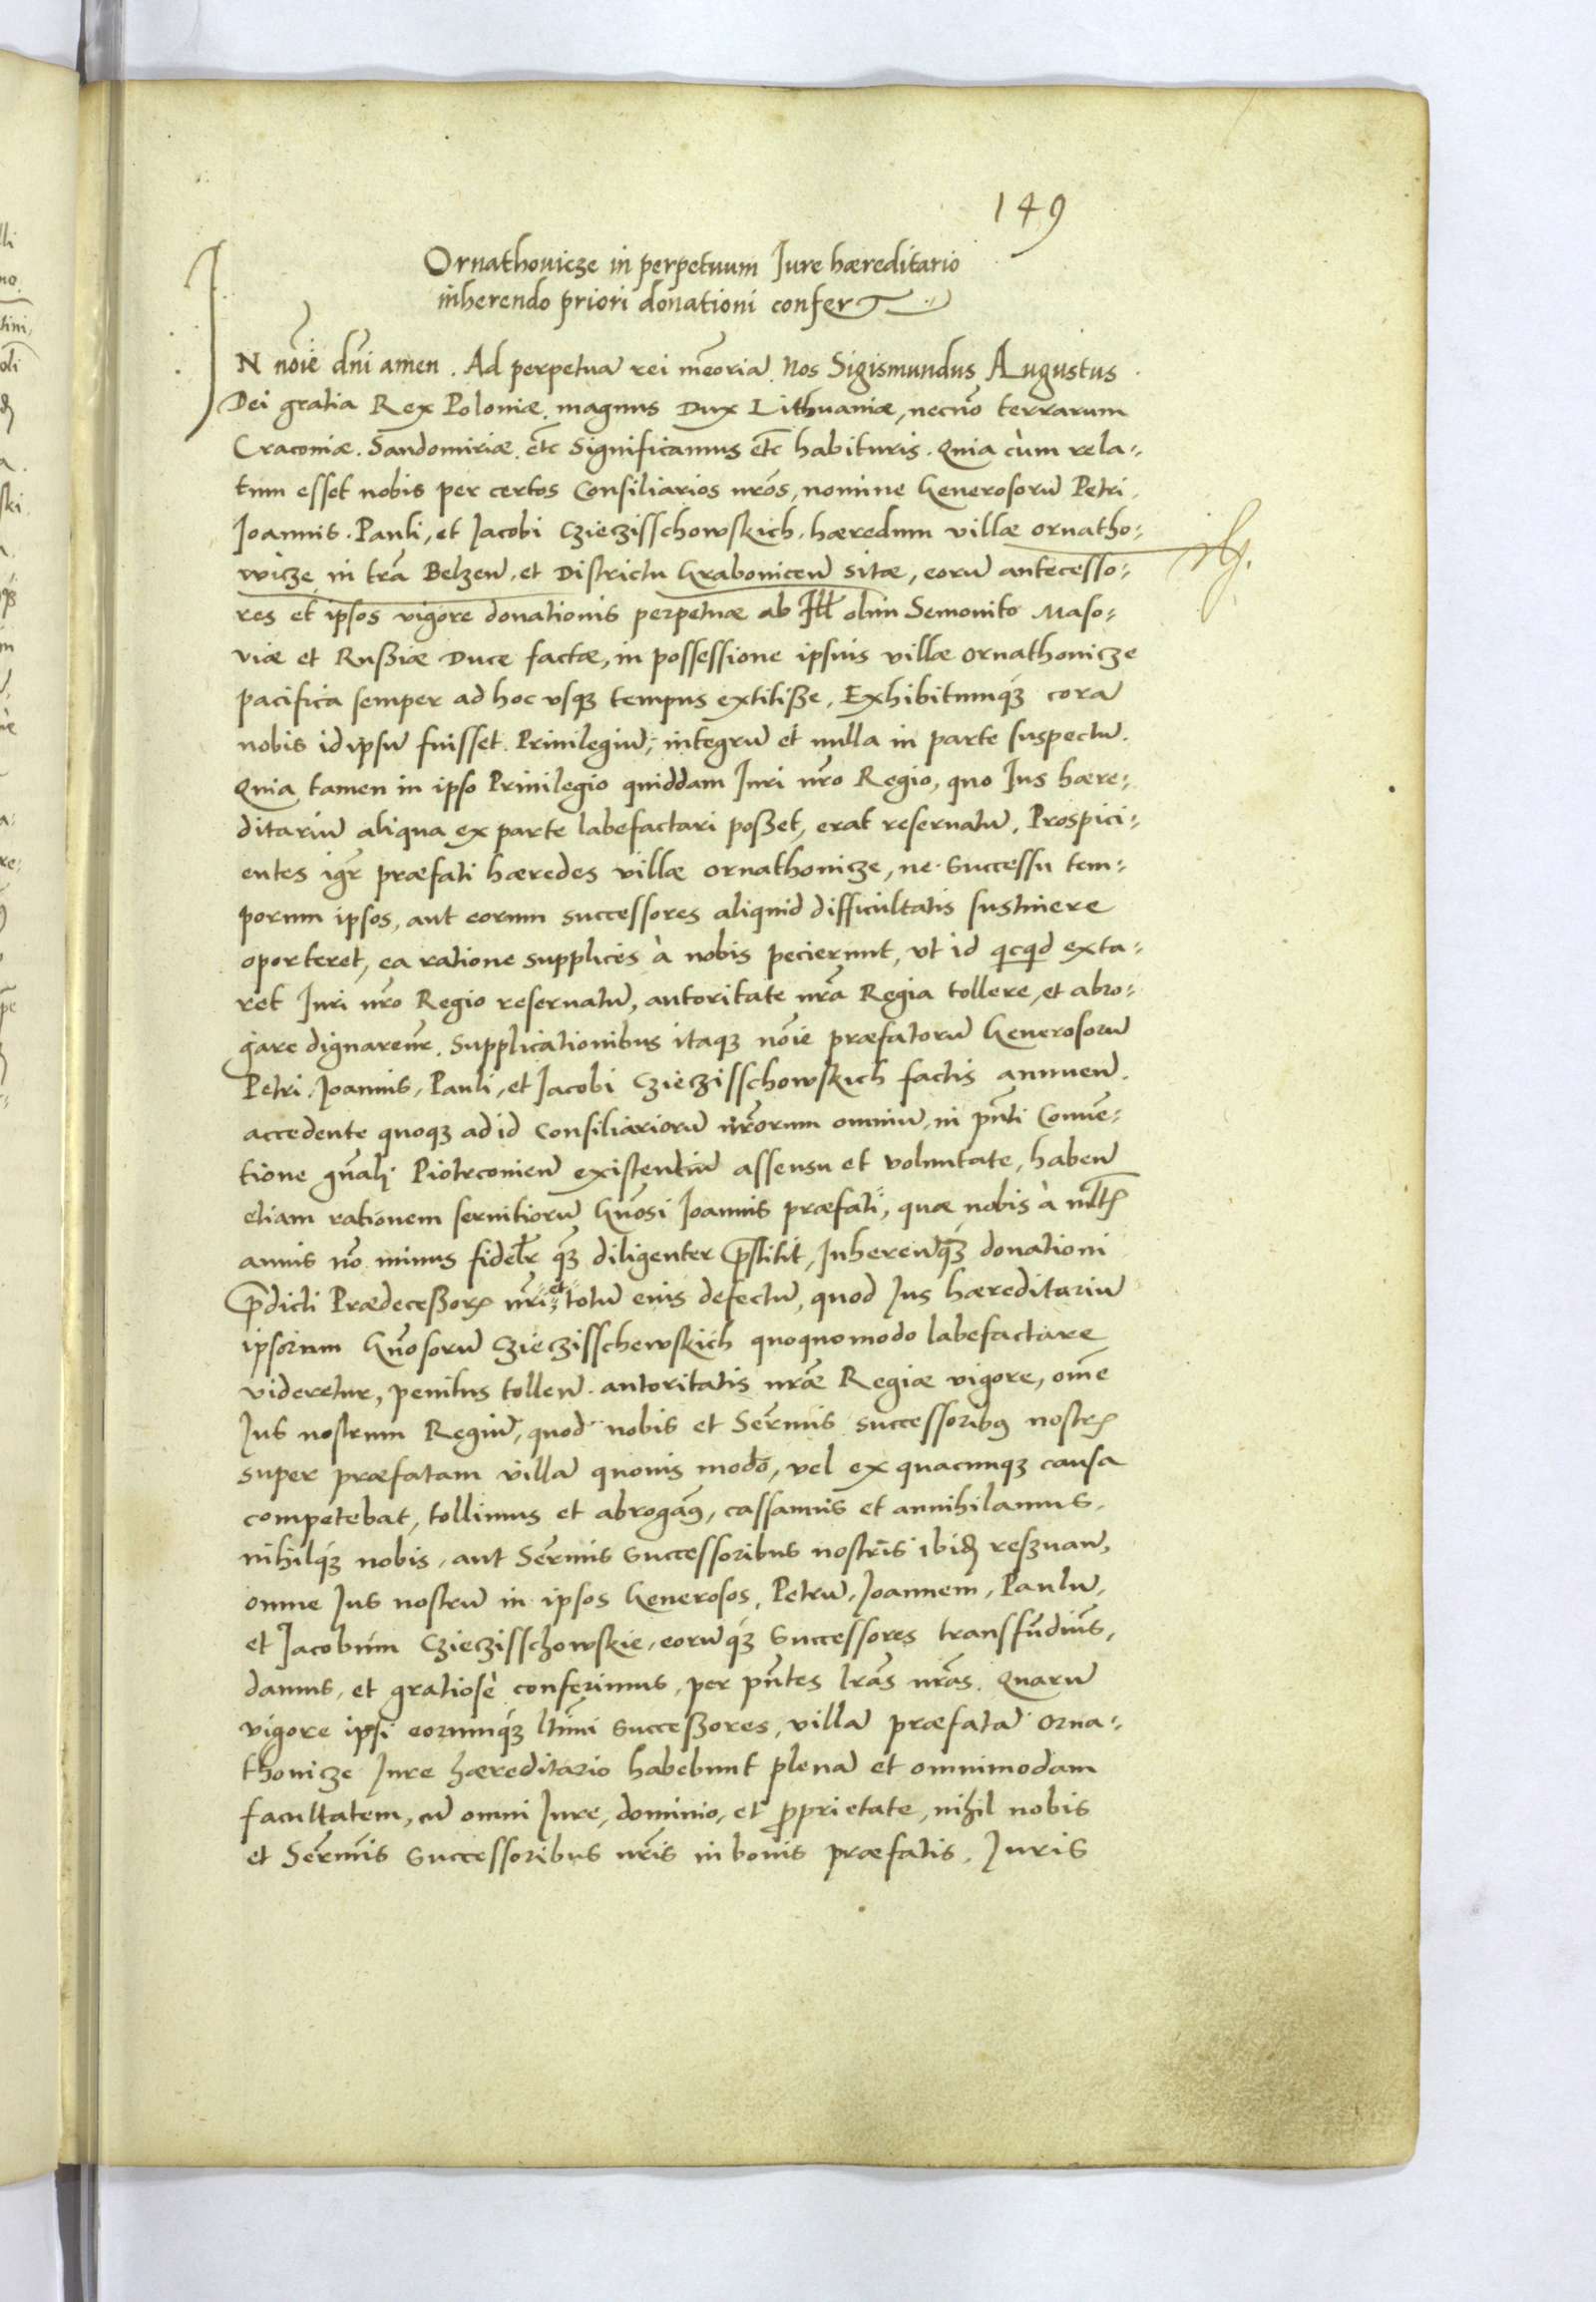 149
Ornathovicze in perpetuum Jure hæreditario
inherendo priori donationi confert
IN noie̅ dn̅i amen. Ad perpetua̅ rei me̅oria̅. Nos Sigismundus Augustus
Dei gratia Rex Poloniæ. magnus Dux Lithuaniæ, necno̅ terrarum
Cracouiæ. Sandomiriæ. etc̅ Significamus etc̅ habituris. Quia cùm rela=
tum esset nobis per certos Consiliarios nr̅os, nomine Generosoru̅ Petri.
Joannis. Pauli, et Jacobi Cziecziſſchowskich. hæredum villæ ornatho=
wicze in tr̅a Belzen̅. et Districtu Grabouicen̅ sitæ, eoru̅ antecesso=
res et ipsos vigore donationis perpetuæ ab Ill̅ olim Semouito Maso=
viæ et Rußiæ Duce factæ, in possessione ipsius villæ ornathouicze
pacifica semper ad hoc vsqꝫ tempus extitiße. Exhibitumqꝫ cora̅
nobis id ipsu̅ fuisset Priuilegiu̅, integru̅ et nulla in parte suspectu̅.
Quia tamen in ipso Priuilegio quiddam Juri nr̅o Regio, quo Jus hære=
ditariu̅ aliqua ex parte labefactari poßet, erat reseruatu̅. Prospici=
entes igr̅ præfati hæredes villæ ornathouicze, ne successu tem=
porum ipsos, aut eorum successores aliquid difficultatis sustinere
oporteret, ea ratione supplices à nobis pecierunt, vt id qcqd exta=
ret Juri nr̅o Regio reseruatu̅, autoritate nr̅a Regia tollere, et abro=
gare dignaremr̅. Supplicationibus itaqꝫ noie̅ præfatoru̅ Generosoru̅
Petri. Joannis, Pauli, et Jacobi Cziecziſſchowskich factis annuen̅.
accedente quoqꝫ ad id Consiliarioru̅ nr̅orum omniu̅, in pn̅ti Conue̅=
tione gn̅ali Piotrcouien̅ existentiu̅ assensu et voluntate, haben̅
etiam rationem seruitioru̅ Gn̅osi Joannis præfati, quæ nobis à mltꝭ
annis no̅ minus fidelr̅ qꝫ diligenter p̅stitit, Inheren̅qꝫ donationi
p̅dicti Prædeceßorꝭ nr̅i, et totu̅ eius defectu̅, quod Jus hæreditariu̅
ipsorum Gn̅osoru̅ Cziecziſſchewskich quoquomodo labefactare
videretur, penitus tollen̅. autoritatis nr̅æ Regiæ vigore, om̅e
Jus nostrum Regiu̅, quod nobis et Ser̅mis successoribꝰ nostrꝭ
super præfatam villa̅ quouis modo, vel ex quacunqꝫ causa
competebat, tollimus et abrogamꝰ, cassamus et annihilamus,
nihilqꝫ nobis, aut Ser̅mis successoribus nostris ibid̅ reseruan̅,
omne Jus nostru̅ in ipsos Generosos, Petru̅, Joannem, Paulu̅,
et Jacobum Cziecziſſchowskie, eoru̅qꝫ successores transfu̅dimꝰ,
damus, et gratiosè conferimus, per pn̅tes lr̅as nr̅as. Quaru̅
vigore ipsi eorumqꝫ ltimi̅ succeßores, villa̅ præfata̅ Orna=
thouicze Jure hæreditario habebunt plena̅ et omnimodam
facultatem, cu̅ omni Jure, dominio, et p̅prietate, nihil nobis
et Ser̅mis successoribus nr̅is in bonis præfatis, Juris